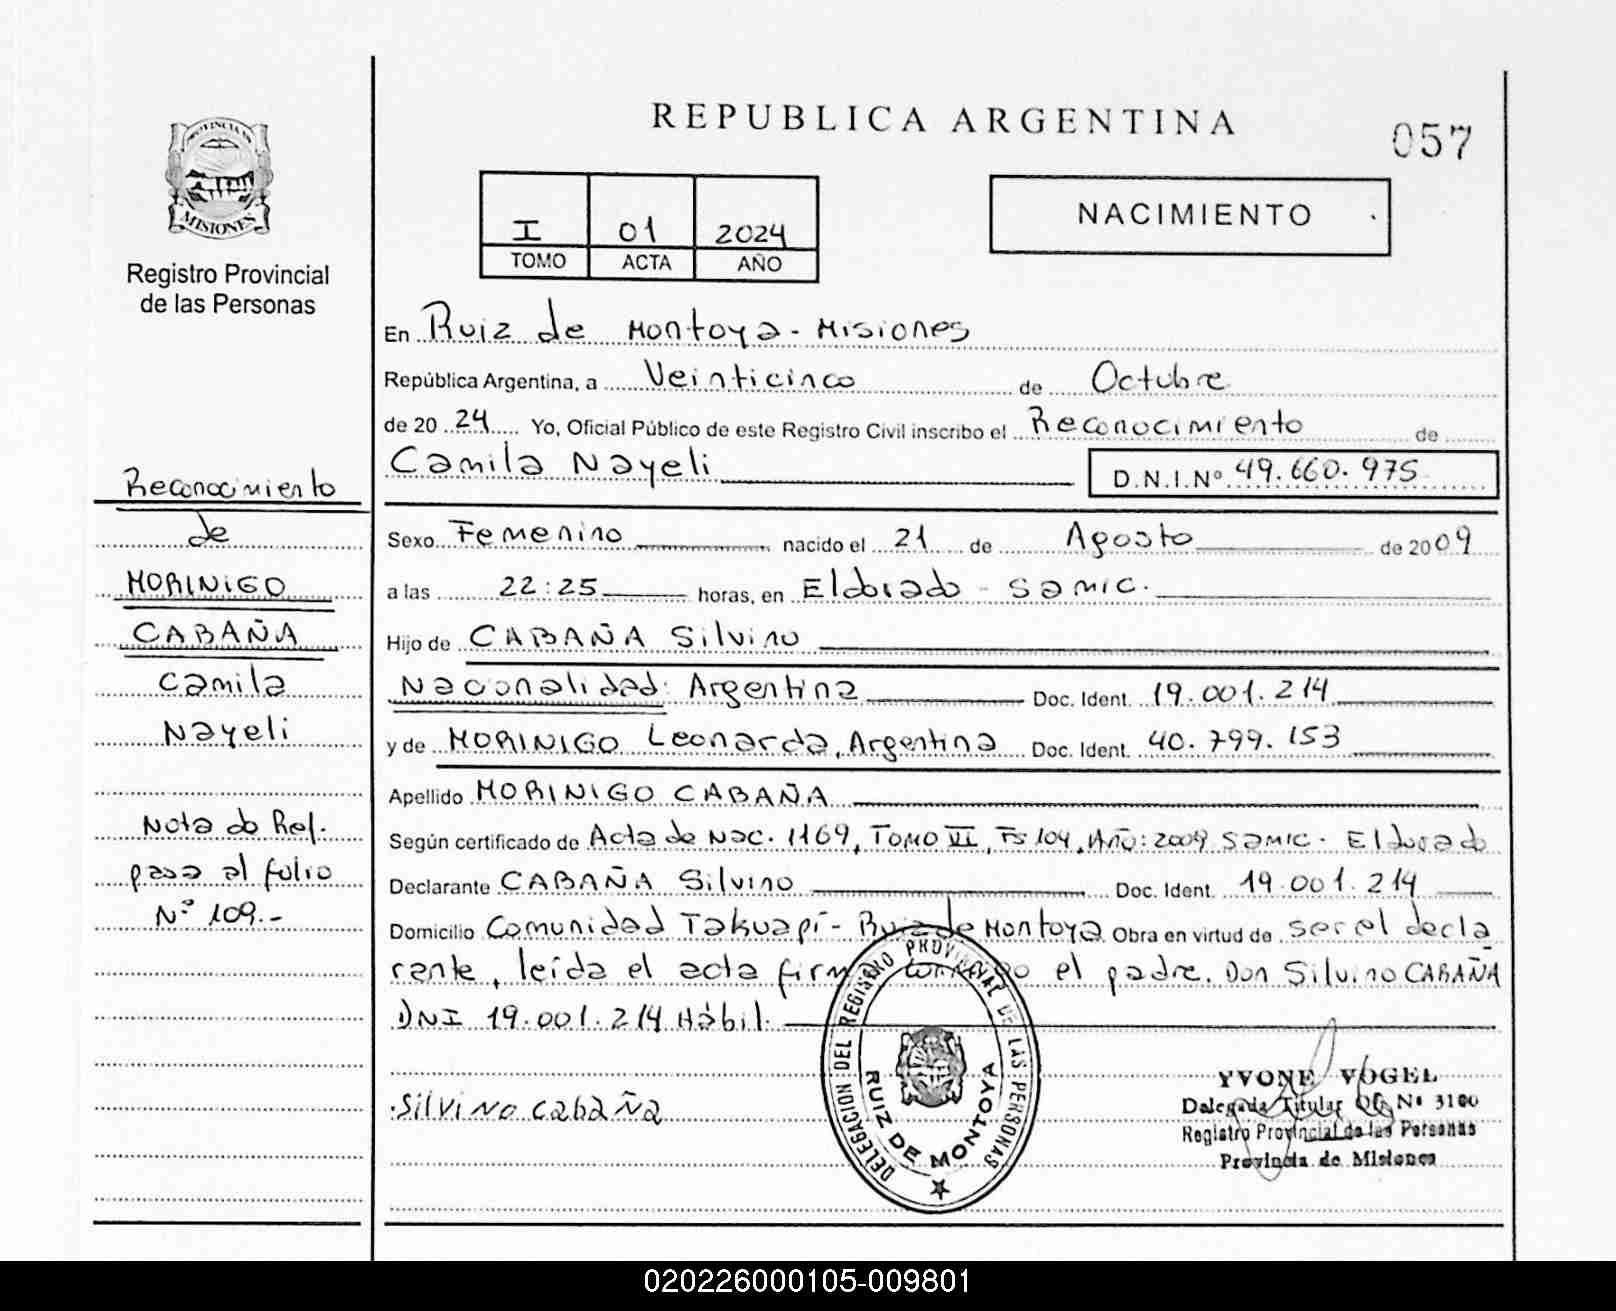 REPUBLICA ARGENTINA
057
PROVINCIA DE
MISIONES
Registro Provincial
de las Personas
I 01 2024
TOMO ACTA AÑO
NACIMIENTO
En Ruiz de Montoya - Misiones
República Argentina, a Veinticinco de Octubre
de 20 24 Yo, Oficial Público de este Registro Civil inscribo el Reconocimiento de
Camila Nayeli D.N.I.Nº 49.660.975
Sexo Femenino nacido el 21 de Agosto de 2009
a las 22:25 horas, en Eldorado - Samic.
Hijo de CABAÑA Silvino
Nacionalidad: Argentina Doc. Ident. 19.001.214
y de MORINIGO Leonarda, Argentina Doc. Ident. 40.799.153
Apellido MORINIGO CABAÑA
Según certificado de Acta de Nac. 1169, TOMO VI, Fs 104, Año: 2009 Samic. Eldorado
Declarante CABAÑA Silvino Doc. Ident. 19.001.214
Domicilio Comunidad Takuapí - Ruiz de Montoya Obra en virtud de ser el decla
rante, leída el acta firma conmigo el padre. Don Silvino CABAÑA
DNI 19.001.214 Hábil.
Silvino Cabaña
DELEGACION DEL REGISTRO PROVINCIAL DE LAS PERSONAS
RUIZ DE MONTOYA
YVONE VOGEL
Delegada Titular Nº 3100
Registro Provincial de las Personas
Provincia de Misiones
Reconocimiento
de
MORINIGO
CABAÑA
Camila
Nayeli
Nota de Ref.
pasa al folio
Nº 109.-
020226000105-009801